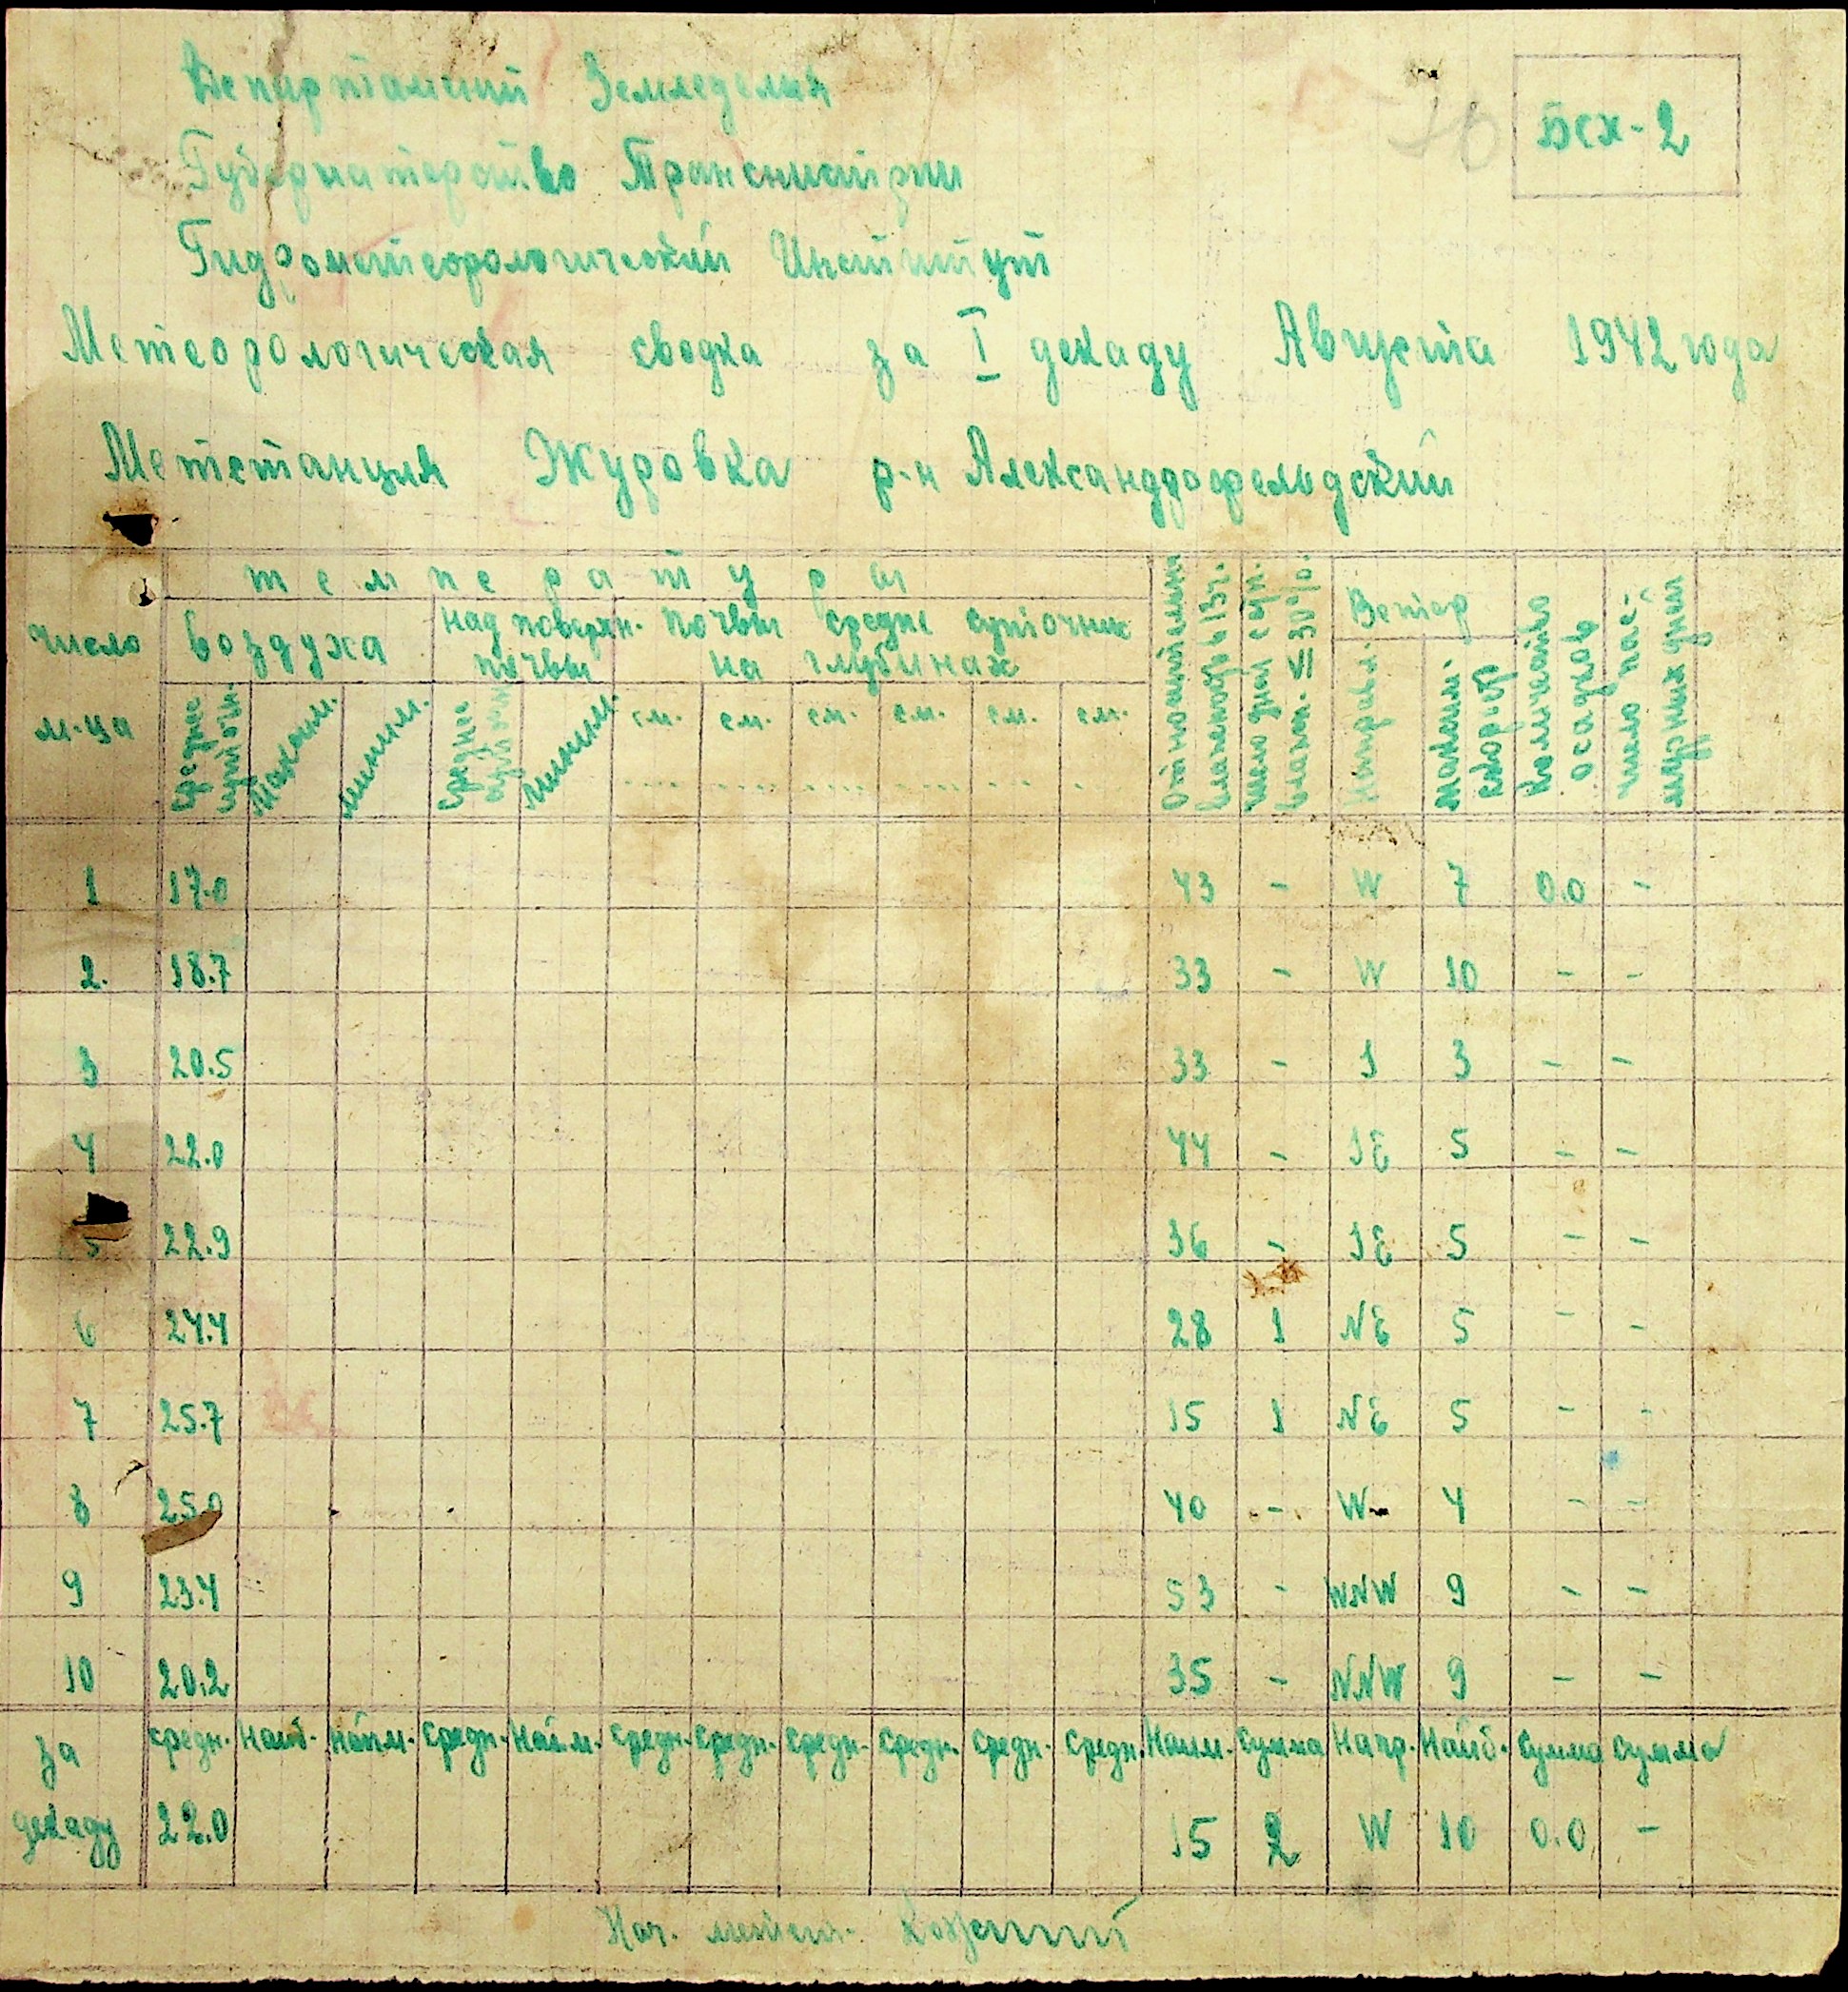 Департамент Земледелия
70
Бсх-2
Губернаторство Транснистрии
Гидрометеорологический Институт
Метеорологическая сводка за I декаду Августа 1942 года
Метстанция Журовка р-н Александрофельдский
число м-ца
температуры
воздуха
над поверхн. почвы
почвы средне суточные на глубинах
Относительная влажность в 13 ч.
число дней с отн. влажн. ≤ 30%.
Ветер
Количество осадков
число пас-мурных дней
среднее суточн. максим. миним. среднее суточн. миним. см. см. см. см. см. см. Направл. максим. скорость
1 17.0 43 - W 7 0.0 -
2. 18.7 33 - W 10 - -
3 20.5 33 - S 3 - -
4 22.0 44 - SE 5 - -
5 22.9 36 - SE 5 - -
6 24.4 28 1 NE 5 - -
7 25.7 15 1 NE 5 - -
8 25.0 40 - W 4 - -
9 23.4 53 - WNW 9 - -
10 20.2 35 - NNW 9 - -
за средн. Наиб. Наим. средн. Наим. средн. средн. средн. средн. средн. средн. Наим. сумма Напр. Наиб. сумма сумма
декаду 22.0 15 2 W 10 0.0 -
Нач. метст.